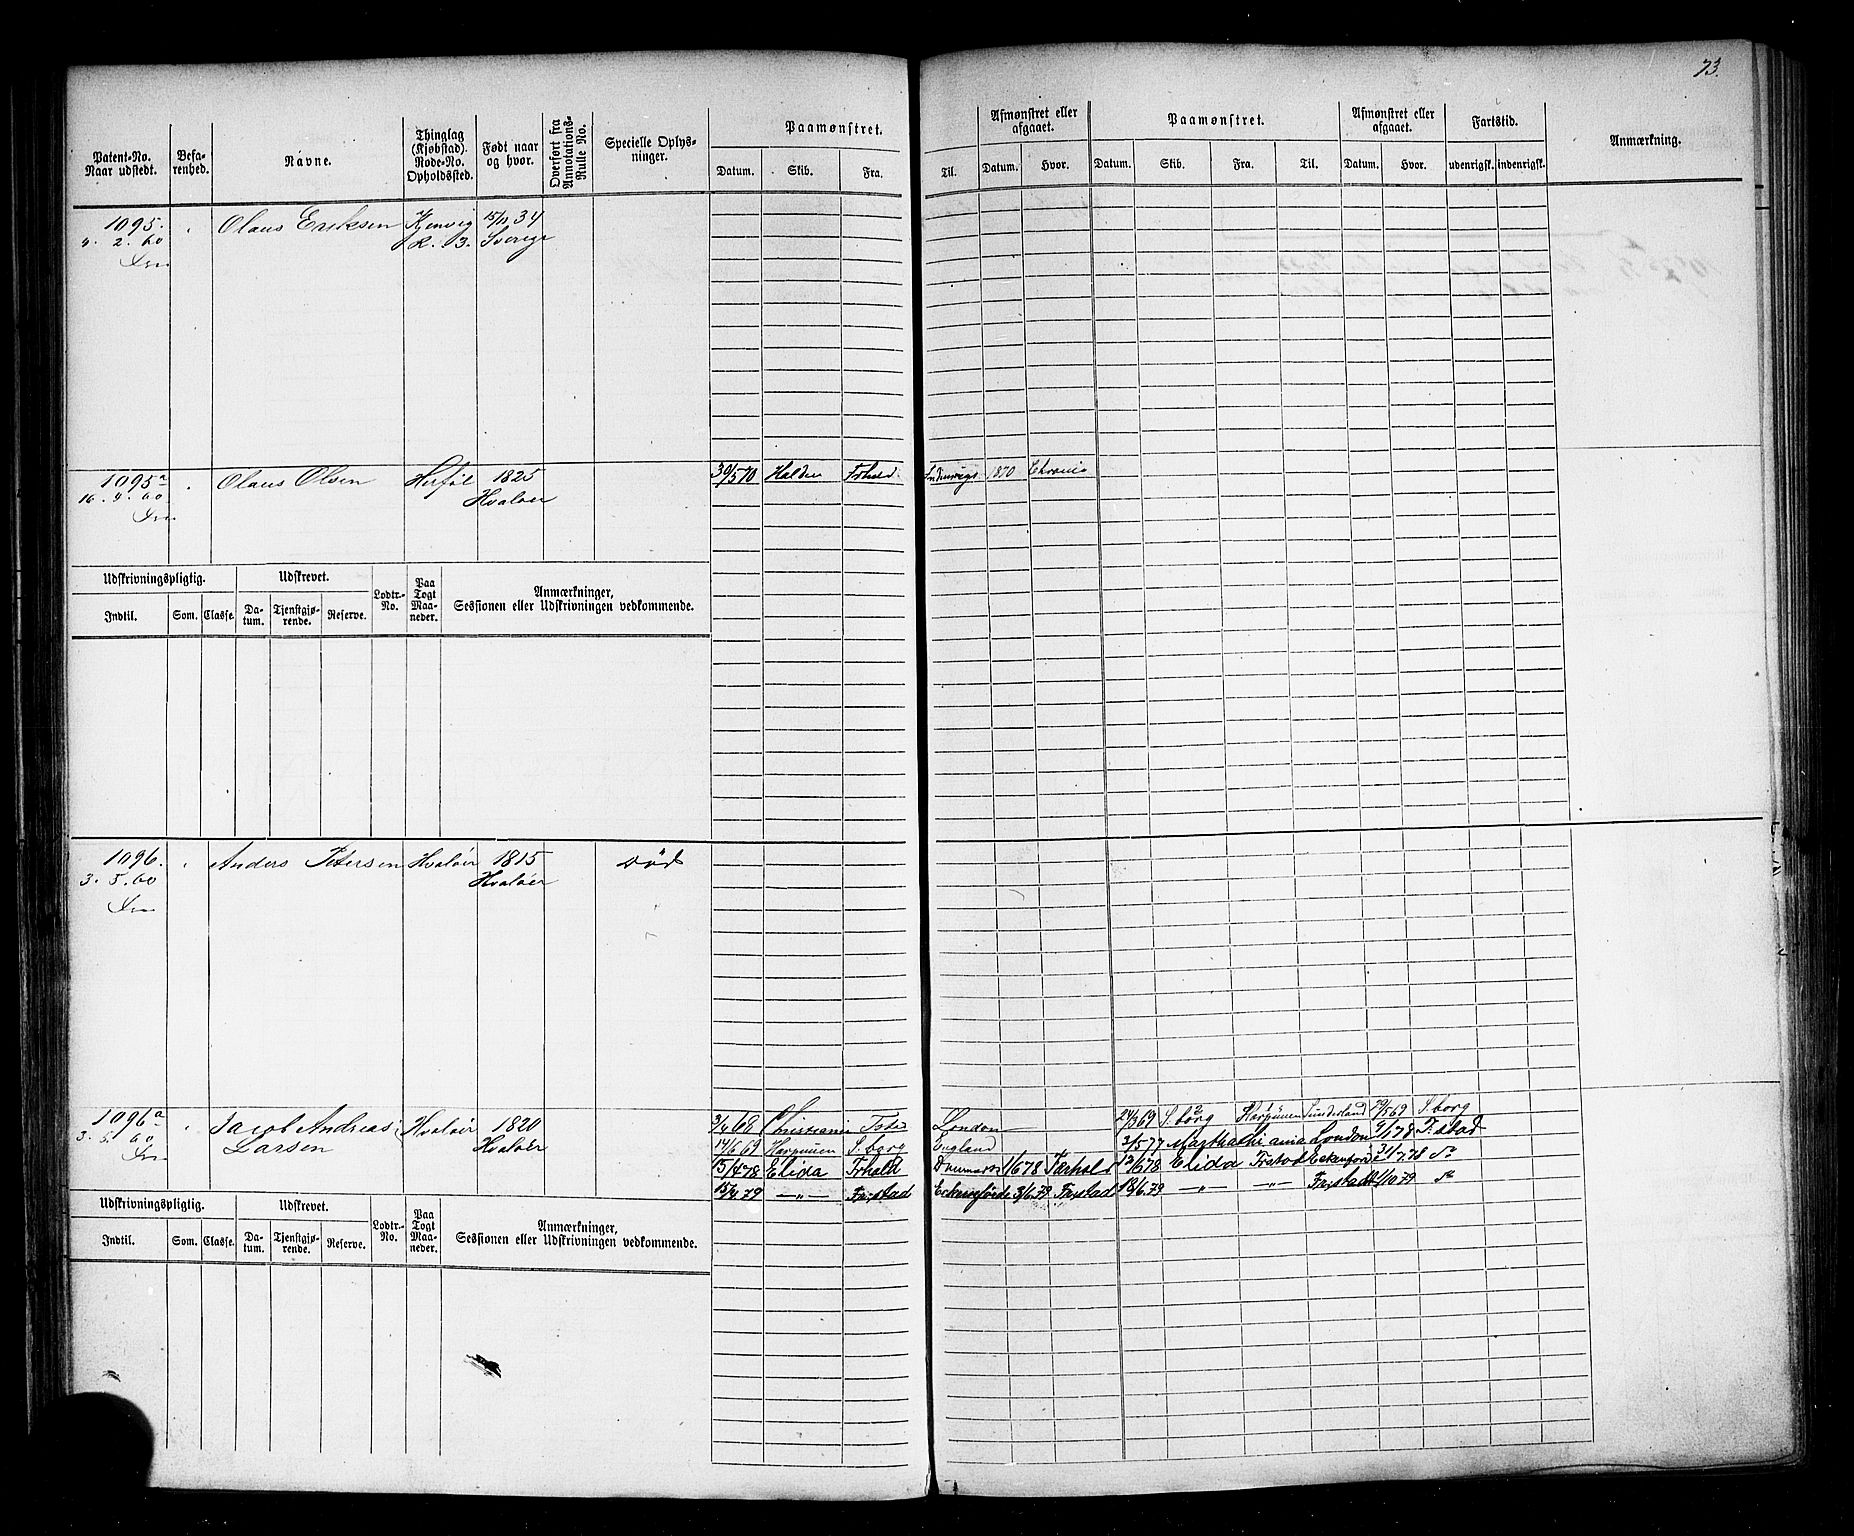 73.
Patent-No.
Naar udstedt.
Befa-
renhed.
Navne.
Thinglag
(Kjøbstad).
Rode-No.
Opholdssted.
Født naar
og hvor.
Overført fra
Annotations-
Rulle No.
Specielle Oplys-
ninger.
Paamønstret.
Datum. Skib. Fra. Til.
Afmønstret eller
afgaaet.
Datum. Hvor.
Paamønstret.
Datum. Skib. Fra. Til.
Afmønstret eller
afgaaet.
Datum. Hvor.
Fartstid.
udenrigsk. indenrigsk.
Anmærkning.
1095. Olaus Eriksen 15/11 34
2. 60 R. 3. Sverige
1095a Olaus Olsen Herføl 1825 30/5 70 Halden Frhald 1870 Chrania
16. 4. 60 Hvaløer
Udskrivningspligtig. Udskrevet. Lodtr.-
No.
Paa
Togt
Maa-
neder.
Anmærkninger,
Sessionen eller Udskrivningen vedkommende.
Indtil. Som. Classe. Da-
tum. Tjenstgjø-
rende. Reserve.
1096. Anders Petersen Hvaløer 1815 død
3. 5. 60 Hvaløer
1096a Jacob Andreas Hvaløer 1820 3/6 68 Christiania London 24/3 69 S.borg Harpunen Sunderland 29/5 69 S.borg
3. 5. 60 Larsen Hvaløer 14/6 69 Harpunen S.borg England 2/5 77 London 9/1 78 F.stad
15/4 78 Elida Frhald Danmark 1/6 78 12/6 78 Elida Frstad 31/7 78 do
15/4 79 —"— Frstad Eckernförde 3/6 79 Frstad 18/6 79 —"— —"— Frstad 1/10 79 do
Udskrivningspligtig. Udskrevet. Lodtr.-
No.
Paa
Togt
Maa-
neder.
Anmærkninger,
Sessionen eller Udskrivningen vedkommende.
Indtil. Som. Classe. Da-
tum. Tjenstgjø-
rende. Reserve.